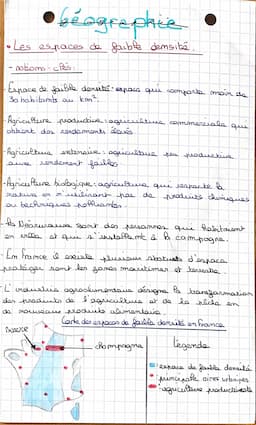 Géographie
• Les espaces de faible densité.
- notions-clés:
- Espace de faible densité: espace qui comporte moins de
30 habitants au km².
- Agriculture productive: agriculture commerciale qui
obtient des rendements élevés
- Agriculture extensive: agriculture peu productive
avec rendement faibles
- Agriculture biologique: agriculture qui respecte la
nature en n'utilisant pas de produits chimiques
ou techniques polluantes.
- sont des personnes qui habitaient
en ville et qui s'installent à la campagne.
- En France il existe plusieurs statuts d'espace
protéger sont les zones maritimes et
- L'industrie agroalimentaire désigne la transformation
des produits de l'agriculture et de la pêche en
de nouveaux produits alimentaires.
Carte des espaces de faible densité en France
champagne
légende
espace de faible densité
principale aires urbaines
agriculture productiviste